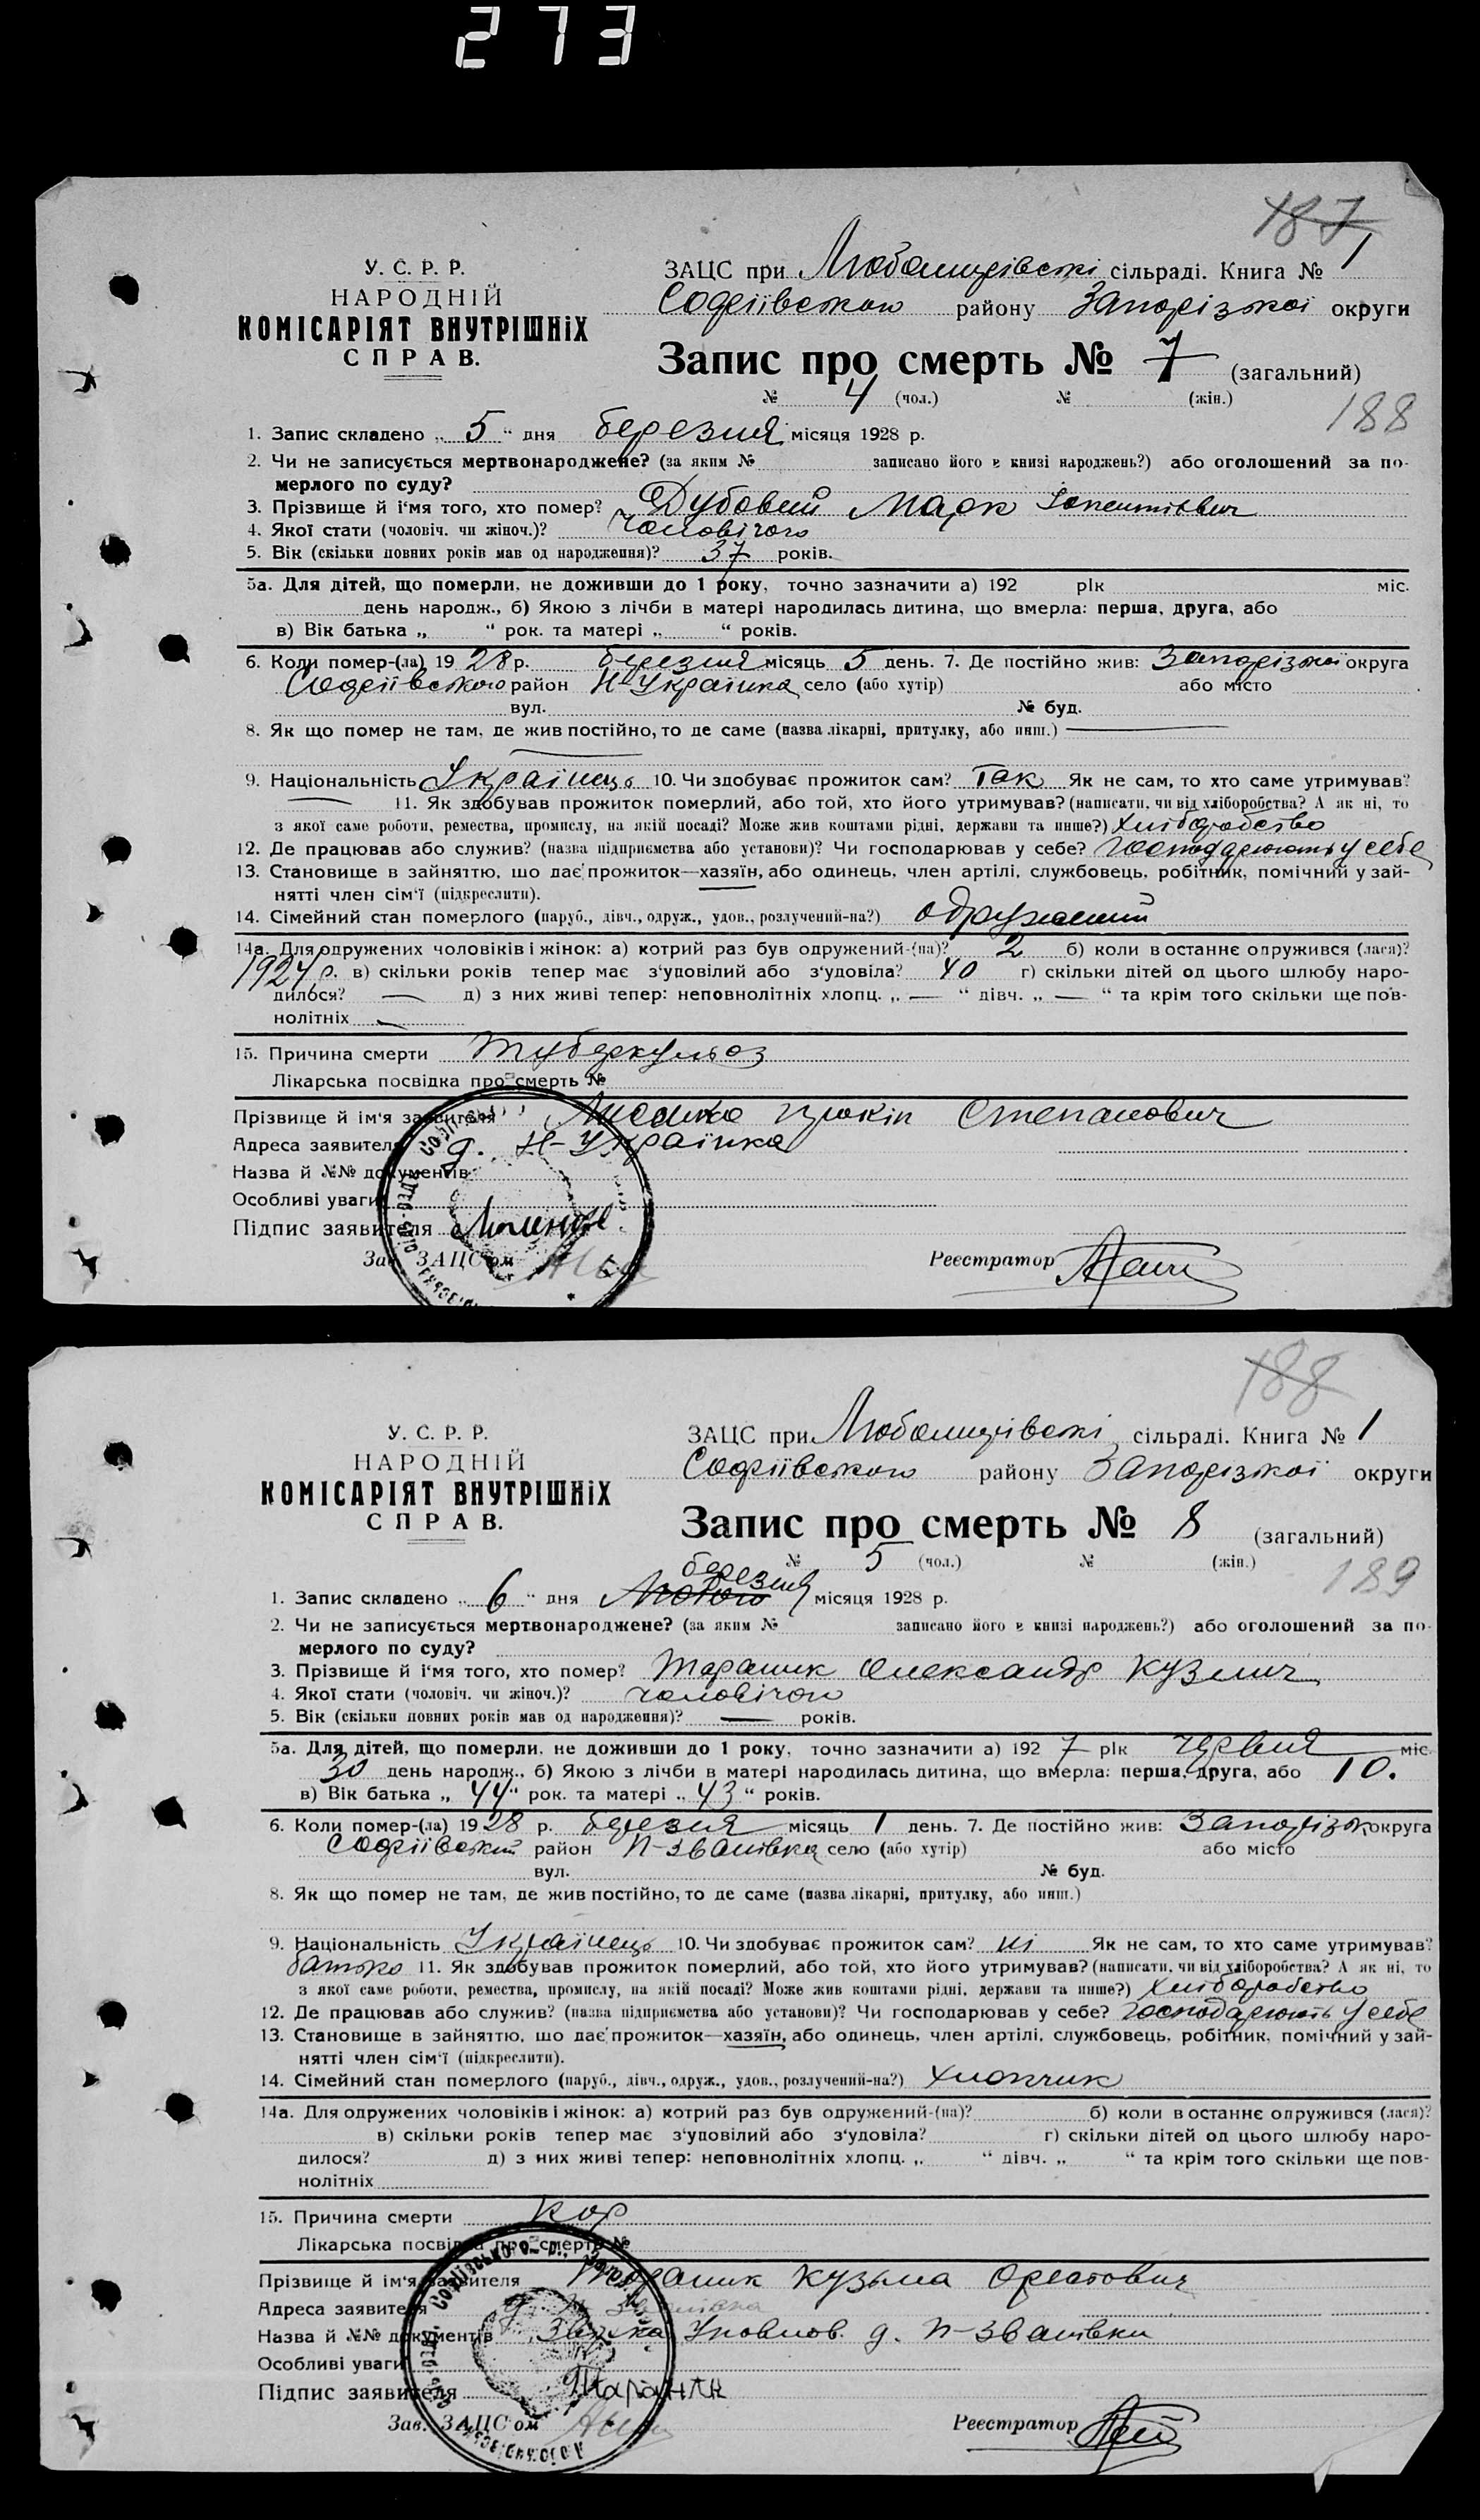 273
187
У. С. Р. Р.
НАРОДНІЙ
КОМІСАРІЯТ ВНУТРІШНІХ
СПРАВ.
ЗАЦС при Любомирівські сільраді. Книга № 1
Софіївського району Запорізької округи
Запис про смерть № 7 (загальний)
№ 4 (чол.) № (жін.)
188
1. Запис складено „ 5 “ дня березня місяця 1928 р.
2. Чи не записується мертвонароджене? (за яким № записано його в книзі народжень?) або оголошений за по-
мерлого по суду?
3. Прізвище й і'мя того, хто помер? Дубовий Марк
4. Якої стати (чоловіч. чи жіноч.)? чоловічого
5. Вік (скільки повних років мав од народження)? 37 років.
5а. Для дітей, що померли, не доживши до 1 року, точно зазначити а) 192 рік міс.
день народж., б) Якою з лічби в матері народилась дитина, що вмерла: перша, друга, або
в) Вік батька „ “ рок. та матері „ “ років.
6. Коли помер-(ла) 1928 р. березня місяць 5 день. 7. Де постійно жив: Запорізької округа
Софіївського район Н-Українка село (або хутір) або місто
вул. № буд.
8. Як що помер не там, де жив постійно, то де саме (назва лікарні, притулку, або инш.) —
9. Національність Українець 10. Чи здобуває прожиток сам? Так Як не сам, то хто саме утримував?
— 11. Як здобував прожиток померлий, або той, хто його утримував? (написати, чи від хліборобства? А як ні, то
з якої саме роботи, ремества, промислу, на якій посаді? Може жив коштами рідні, держави та инше?) Хліборобство
12. Де працював або служив? (назва підприємства або установи)? Чи господарював у себе? господарюють у себе
13. Становище в зайняттю, що дає прожиток—хазяїн, або одинець, член артілі, службовець, робітник, помічний у зай-
нятті член сім'ї (підкреслити).
14. Сімейний стан померлого (паруб., дівч., одруж., удов., розлучений-на?) одружений
14а. Для одружених чоловіків і жінок: а) котрий раз був одружений-(на)? 2 б) коли востаннє одружився (лася)?
1924 р. в) скільки років тепер має з'удовілий або з'удовіла? 40 г) скільки дітей од цього шлюбу наро-
дилося? — д) з них живі тепер: неповнолітніх хлопц. „ — “ дівч. „ — “ та крім того скільки ще пов-
нолітніх —
15. Причина смерти туберкульоз
Лікарська посвідка про смерть №
Прізвище й ім'я заявителя Прокіп Степанович
Адреса заявителя д. Н-Українка
Назва й №№ документів
Особливі уваги
Підпис заявителя
Зав. ЗАЦС'ом Реєстратор
188
У. С. Р. Р.
НАРОДНІЙ
КОМІСАРІЯТ ВНУТРІШНІХ
СПРАВ.
ЗАЦС при Любомирівські сільраді. Книга № 1
Софіївського району Запорізької округи
Запис про смерть № 8 (загальний)
№ 5 (чол.) № (жін.)
189
березня
1. Запис складено „ 6 “ дня Лютого місяця 1928 р.
2. Чи не записується мертвонароджене? (за яким № записано його в книзі народжень?) або оголошений за по-
мерлого по суду?
3. Прізвище й і'мя того, хто помер? Тараник Олександр Кузмич
4. Якої стати (чоловіч. чи жіноч.)? чоловічого
5. Вік (скільки повних років мав од народження)? — років.
5а. Для дітей, що померли, не доживши до 1 року, точно зазначити а) 1927 рік червня міс.
30 день народж., б) Якою з лічби в матері народилась дитина, що вмерла: перша, друга, або 10.
в) Вік батька „ 44 “ рок. та матері „ 43 “ років.
6. Коли помер-(ла) 1928 р. березня місяць 1 день. 7. Де постійно жив: Запорізьк. округа
Софіївський район П-Званівка село (або хутір) або місто
вул. № буд.
8. Як що помер не там, де жив постійно, то де саме (назва лікарні, притулку, або инш.)
9. Національність Українець 10. Чи здобуває прожиток сам? ні Як не сам, то хто саме утримував?
батько 11. Як здобував прожиток померлий, або той, хто його утримував? (написати, чи від хліборобства? А як ні, то
з якої саме роботи, ремества, промислу, на якій посаді? Може жив коштами рідні, держави та инше?) Хліборобство
12. Де працював або служив? (назва підприємства або установи)? Чи господарював у себе? господарюють у себе
13. Становище в зайняттю, що дає прожиток—хазяїн, або одинець, член артілі, службовець, робітник, помічний у зай-
нятті член сім'ї (підкреслити).
14. Сімейний стан померлого (паруб., дівч., одруж., удов., розлучений-на?) хлопчик
14а. Для одружених чоловіків і жінок: а) котрий раз був одружений-(на)? б) коли востаннє одружився (лася)?
в) скільки років тепер має з'удовілий або з'удовіла? г) скільки дітей од цього шлюбу наро-
дилося? д) з них живі тепер: неповнолітніх хлопц. „ “ дівч. „ “ та крім того скільки ще пов-
нолітніх
15. Причина смерти Кор
Лікарська посвідка про смерть №
Прізвище й ім'я заявителя Тараник Кузьма
Адреса заявителя д. П-Званівка
Назва й №№ документів д. П-Званівки
Особливі уваги
Підпис заявителя Тараник
Зав. ЗАЦС'ом Реєстратор